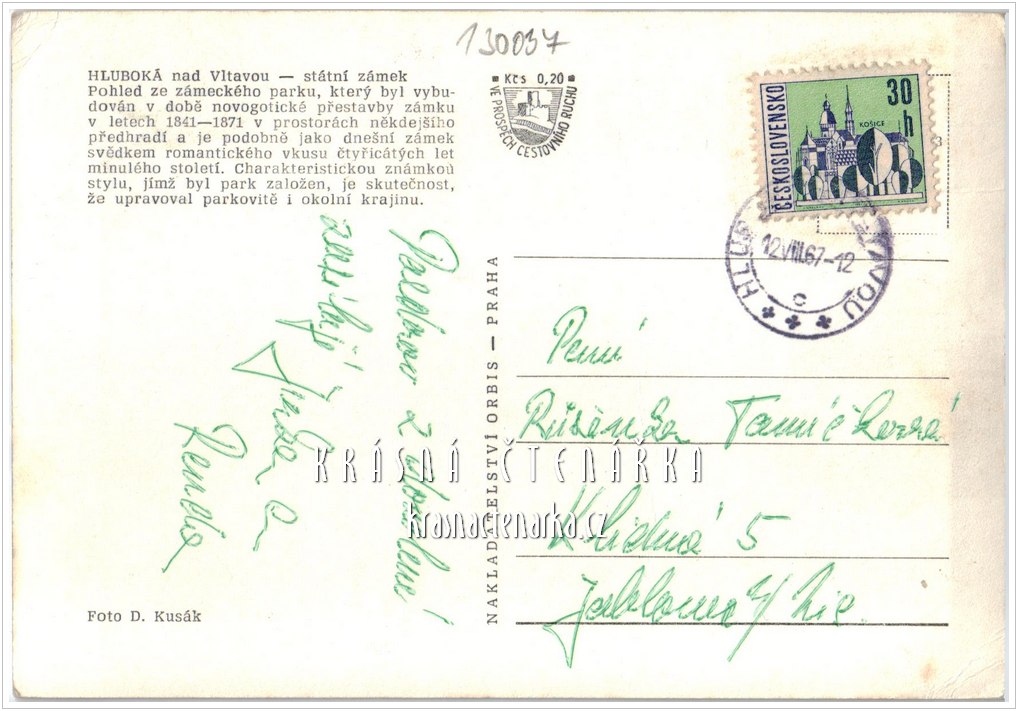 130037
HLUBOKÁ nad Vltavou — státní zámek
Pohled ze zámeckého parku, který byl vybu-
dován v době novogotické přestavby zámku
v letech 1841—1871 v prostorách někdejšího
předhradí a je podobně jako dnešní zámek
svědkem romantického vkusu čtyřicátých let
minulého století. Charakteristickou známkou
stylu, jímž byl park založen, je skutečnost,
že upravoval parkovitě i okolní krajinu.
Kčs 0,20
VE PROSPĚCH CESTOVNÍHO RUCHU
ČESKOSLOVENSKO
30 h
KOŠICE
12.VIII.67-12
c
Pozdrav z dovolené
zasílají
Jirka a
Renda
NAKLADATELSTVÍ ORBIS — PRAHA
Paní
Růženka
Klidná 5
Jablonec n/Nis
KRÁSNÁ ČTENÁŘKA
krasnactenarka.cz
Foto D. Kusák